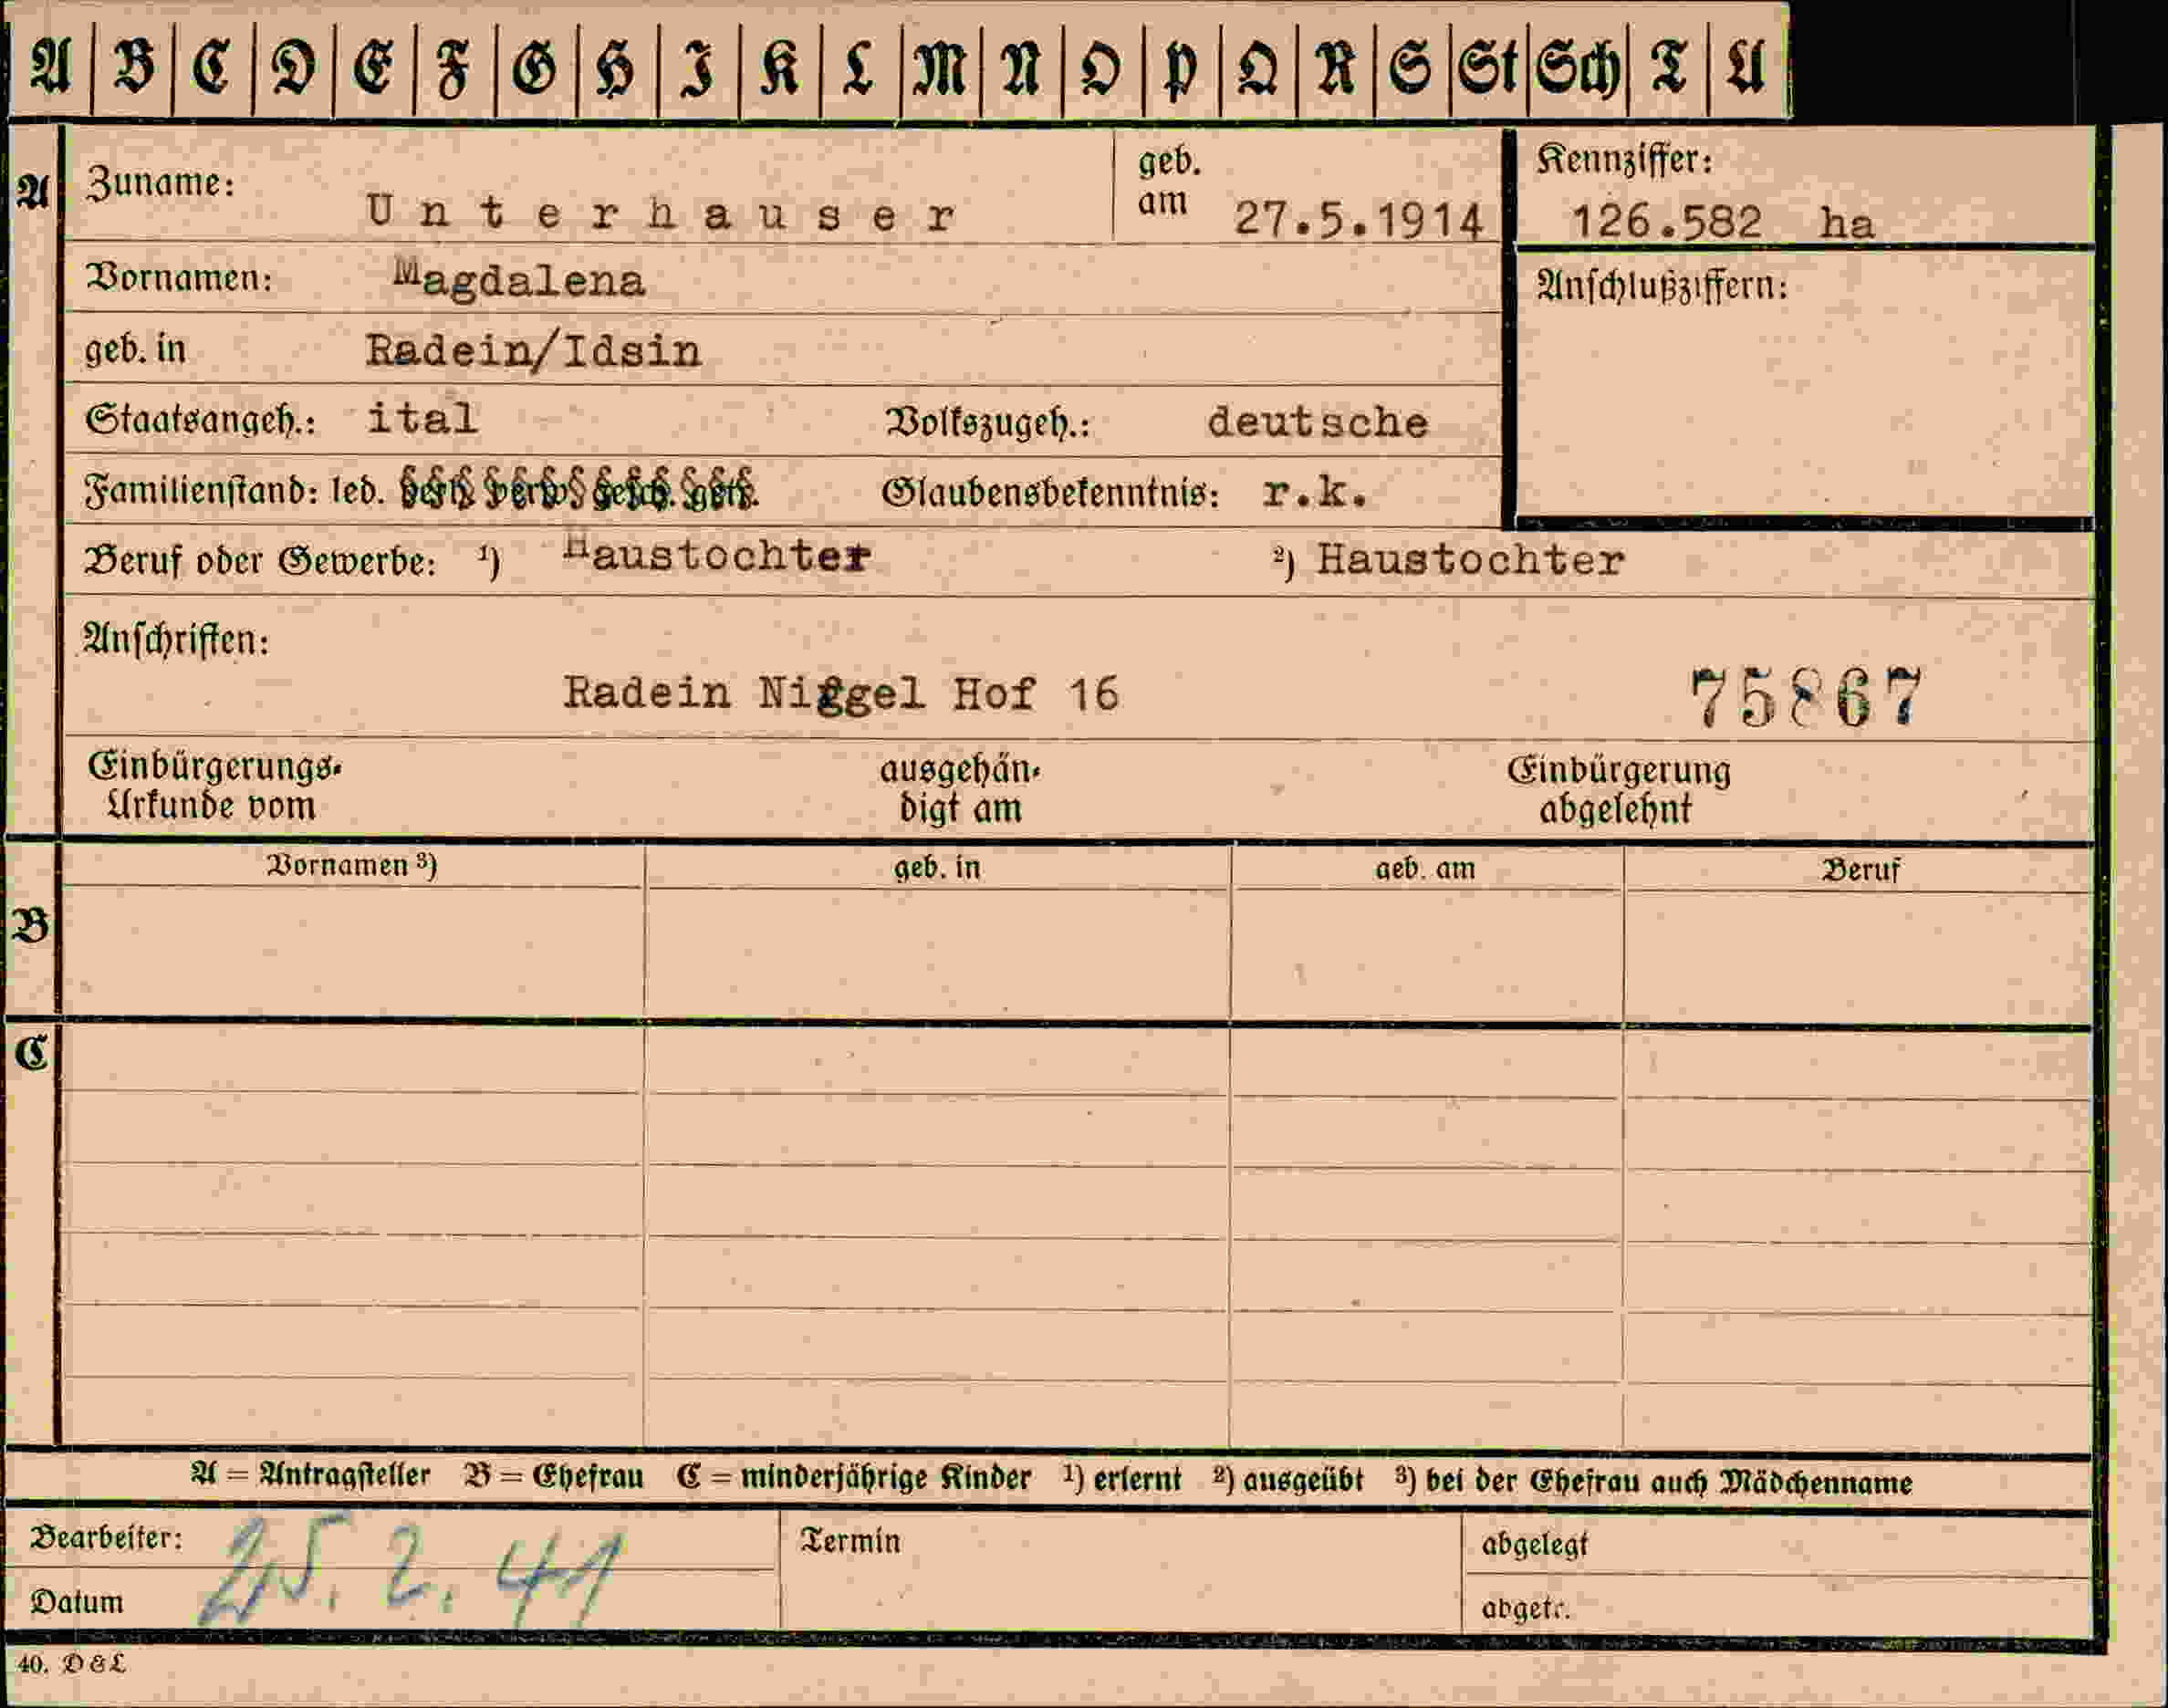 A B C D E F G H I K L M N O P Q R S St Sch T U
A Zuname: Unterhauser geb. am 27.5.1914 Kennziffer: 126.582 ha
Vornamen: Magdalena Anschlußziffern:
geb. in Radein/Idsin
Staatsangeh.: ital Volkszugeh.: deutsche
Familienstand: led. verh. verw. gesch. getr. Glaubensbekenntnis: r.k.
Beruf oder Gewerbe: ¹) Haustochter ²) Haustochter
Anschriften:
Radein Niggel Hof 16 75867
Einbürgerungs- ausgehän- Einbürgerung
Urkunde vom digt am abgelehnt
Vornamen ³) geb. in geb. am Beruf
B
C
A = Antragsteller B = Ehefrau C = minderjährige Kinder ¹) erlernt ²) ausgeübt ³) bei der Ehefrau auch Mädchenname
Bearbeiter: Termin abgelegt
Datum 25. 2. 41 abgetr.
40. D & L